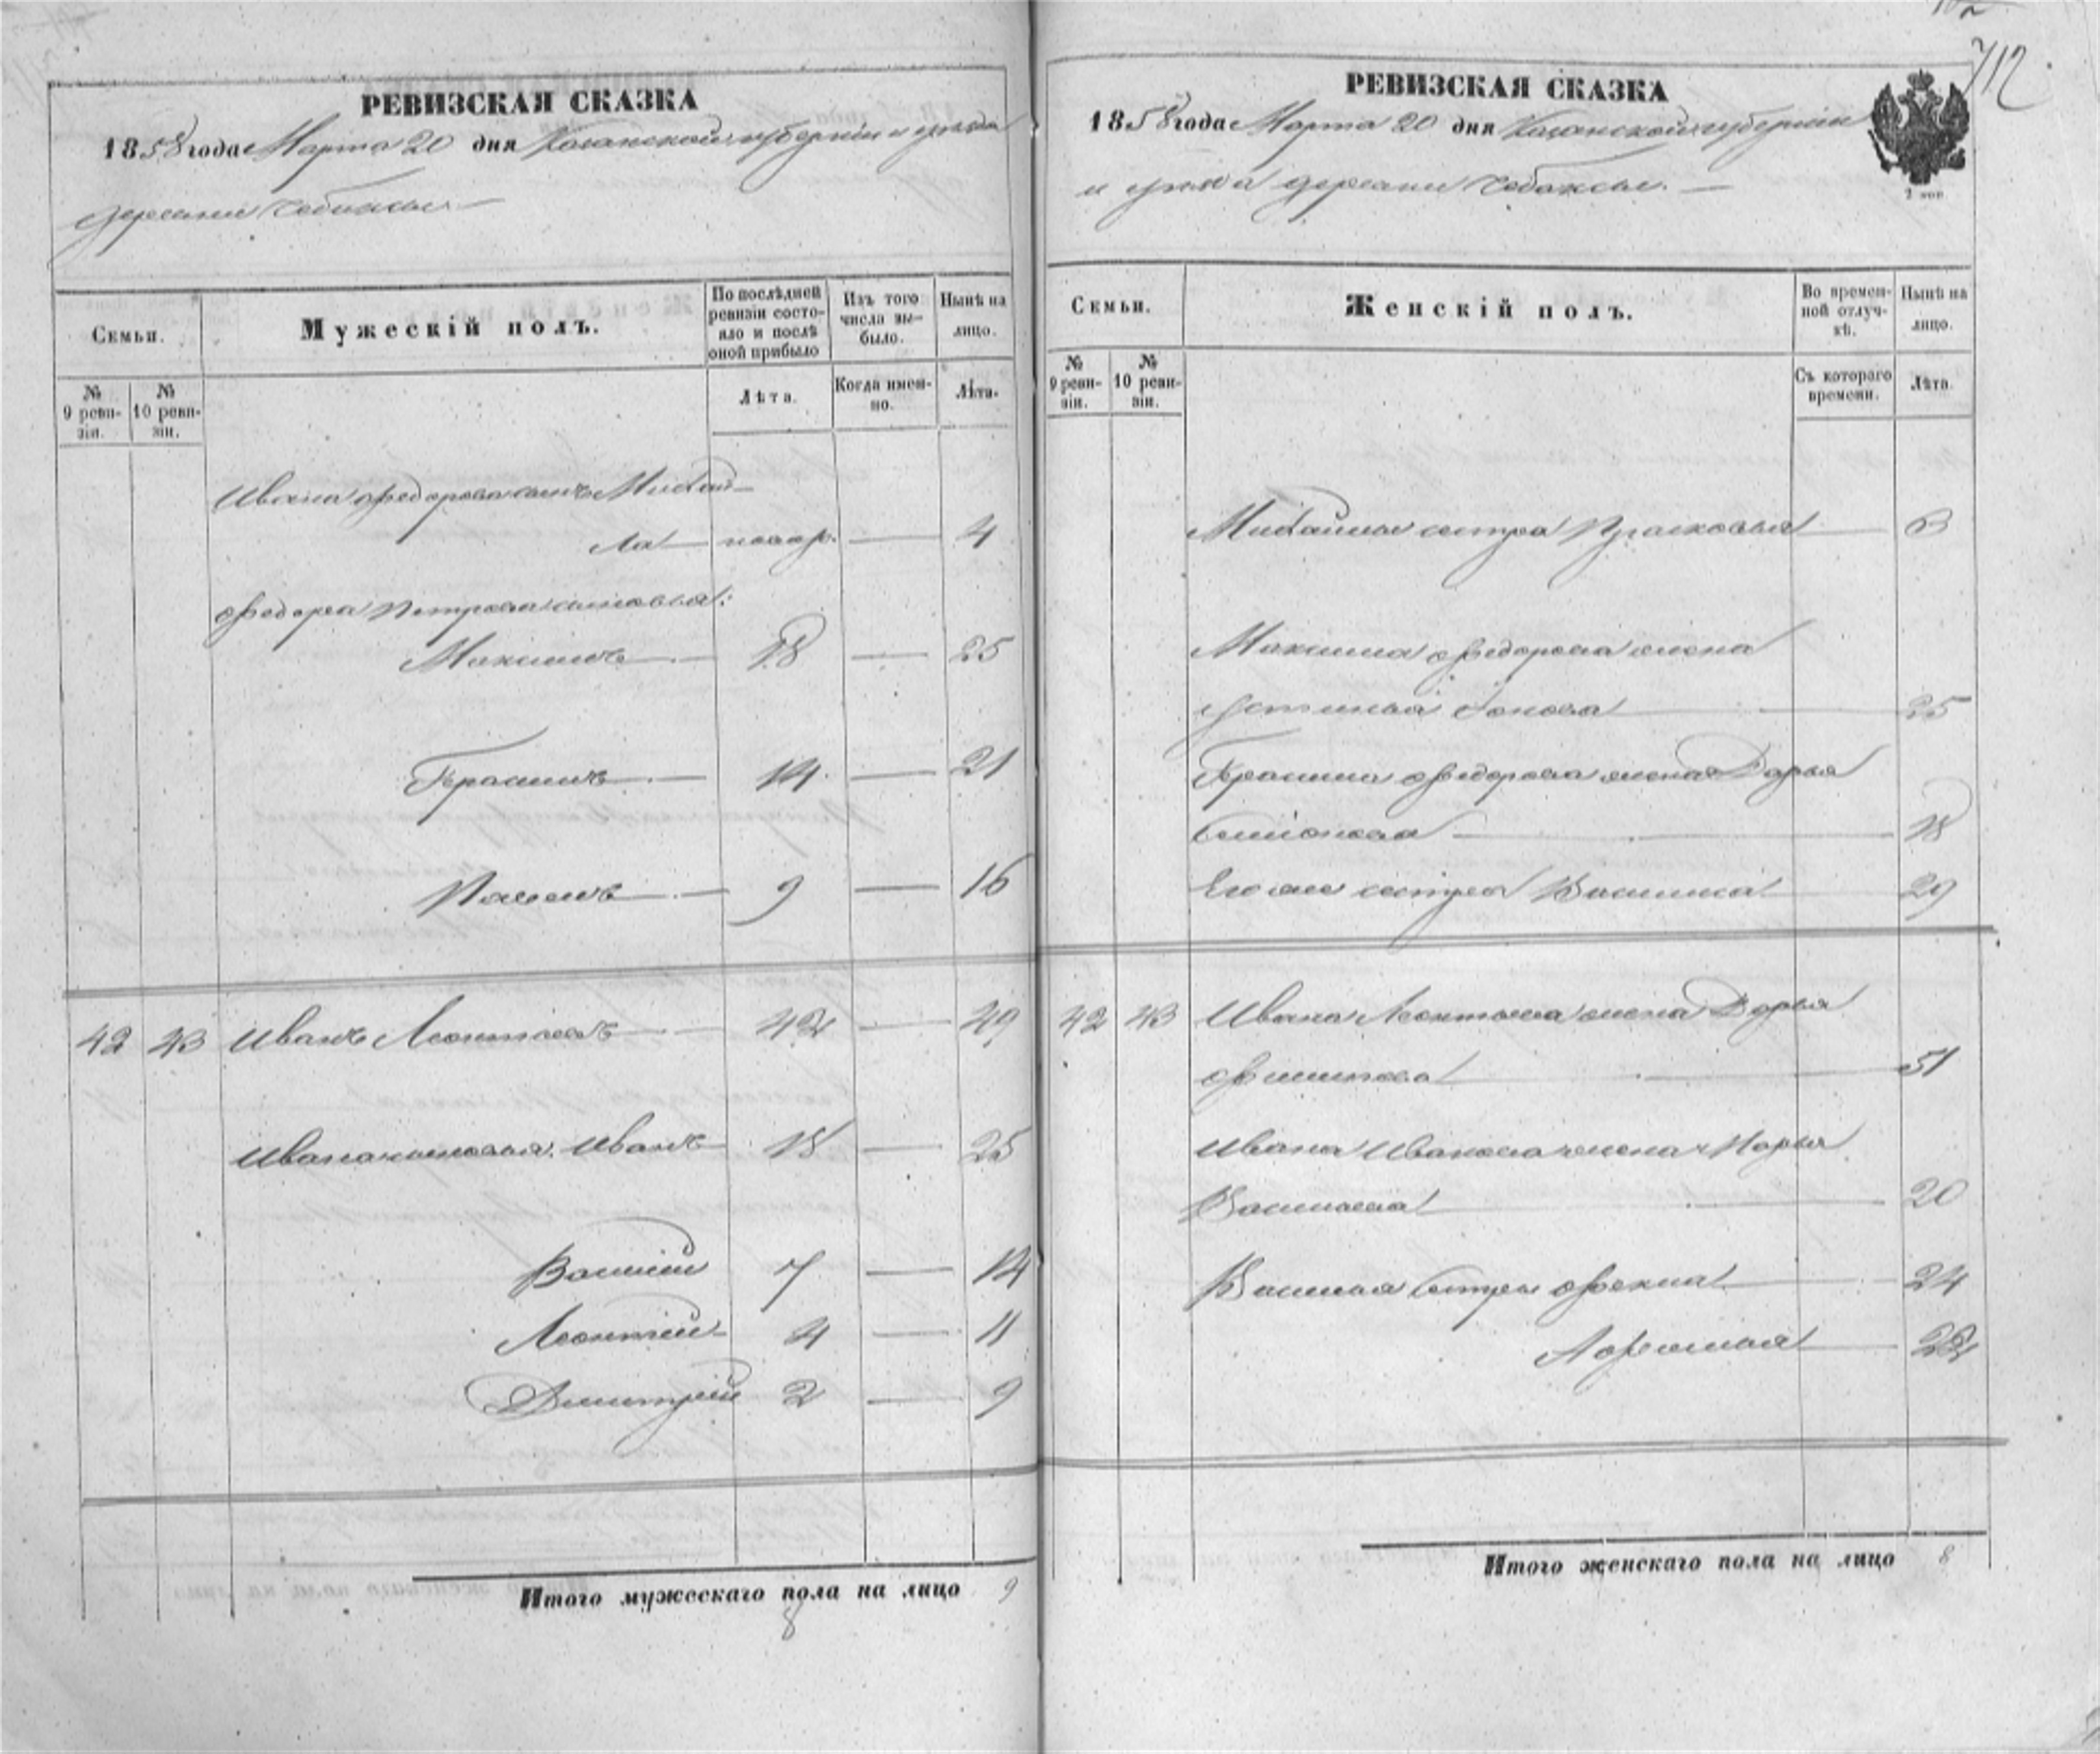 712
РЕВИЗСКАЯ СКАЗКА
1858 года Марта 20 дня Казанской губернiи и уѣзда
деревни Чебаксы.
Семьи.
Мужескiй полъ.
По послѣдней ревизiи состояло и послѣ оной прибыло
Изъ того числа выбыло.
Нынѣ на лицо.
№ 9 ревизiи.
№ 10 ревизiи.
Лѣта.
Когда именно.
Лѣта.
Ивана Федорова сынъ Михай-
ла новор. — 4
Федора Петрова сыновья:
Максимъ — 18 — 25
Герасимъ — 14 — 21
Павелъ — 9 — 16
42 43 Иванъ Леонтьевъ — 42 — 49
Ивана сыновья: Иванъ 18 — 25
Василiй 7 — 14
Леонтiй 4 — 11
Дмитрiй 2 — 9
Итого мужескаго пола на лицо 9
8
РЕВИЗСКАЯ СКАЗКА
1858 года Марта 20 дня Казанской губернiи
и уѣзда деревни Чебаксы. —
2 коп
Семьи.
Женскiй полъ.
Во временной отлучкѣ.
Нынѣ на лицо.
№ 9 ревизiи.
№ 10 ревизiи.
Съ котораго времени.
Лѣта.
Михайлы сестра Прасковья — 6
Максима Федорова жена
Устинья — 25
Герасима Федорова жена Дарья
Семiонова — 18
Его же сестра Василиса — 29
42 43 Ивана Леонтьева жена Дарья
Филипова — 51
Ивана Иванова жена Марья
Васильева — 20
Василья сестры Фекла — 24
Афимья — 22
Итого женскаго пола на лицо 8